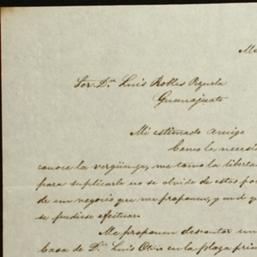 Sor. Dn. Luis Robles Pezuela
Guanajuato
Mi estimado amigo
Como la necesi
conoce la vergüenza, me tomo la liberta
para suplicarle no se olvide de estos po
de un negocio que me proponen, y en el q
se pudiese efectuar.
Me proponen descontar un
Casa de Dn. Luis en la plaza prin